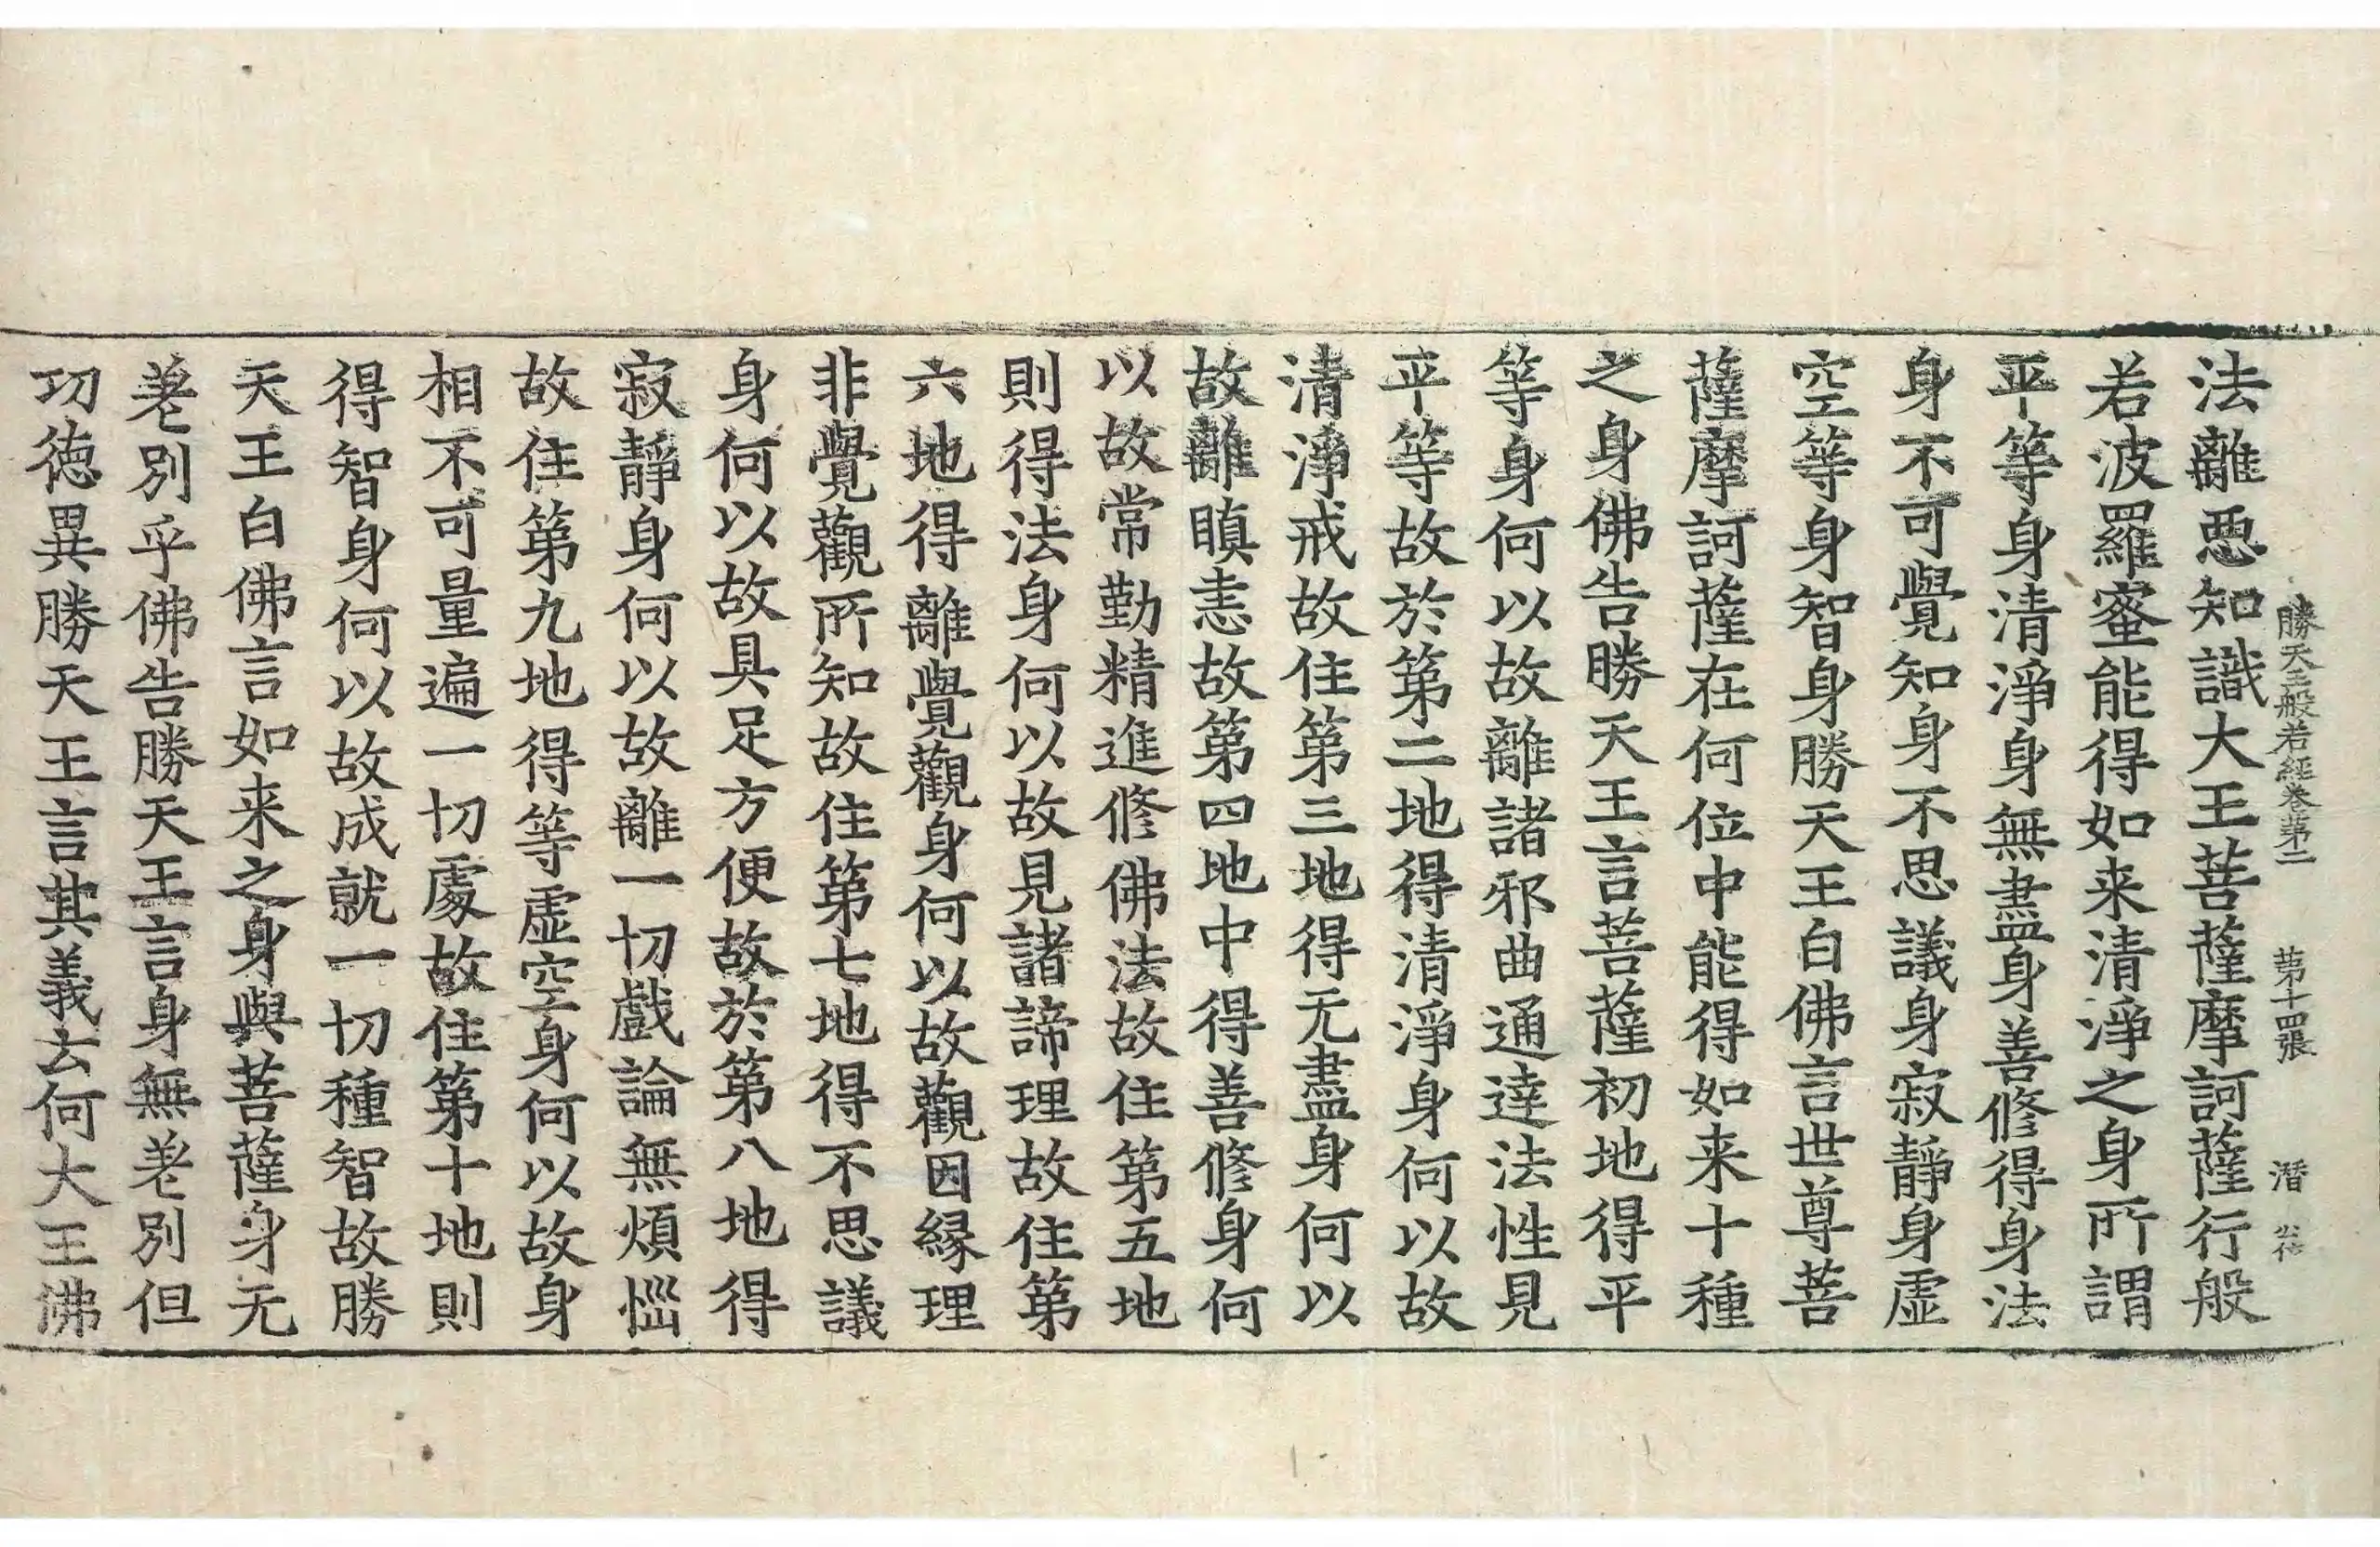 勝天王般若經卷第二 第十四張 潛
法離惡知識大王菩薩摩訶薩行般
若波羅蜜能得如来清淨之身所謂
平等身清淨身無盡身善修得身法
身不可覺知身不思議身寂靜身虛
空等身智身勝天王白佛言世尊菩
薩摩訶薩在何位中能得如来十種
之身佛告勝天王言菩薩初地得平
等身何以故離諸邪曲通達法性見
平等故於第二地得清淨身何以故
清淨戒故住第三地得无盡身何以
故離瞋恚故第四地中得善修身何
以故常勤精進修佛法故住第五地
則得法身何以故見諸諦理故住第
六地得離覺觀身何以故觀因緣理
非覺觀所知故住第七地得不思議
身何以故具足方便故於第八地得
寂靜身何以故離一切戲論無煩惱
故住第九地得等虛空身何以故身
相不可量遍一切處故住第十地則
得智身何以故成就一切種智故勝
天王白佛言如来之身與菩薩身无
差別乎佛告勝天王言身無差別但
功德異勝天王言其義云何大王佛